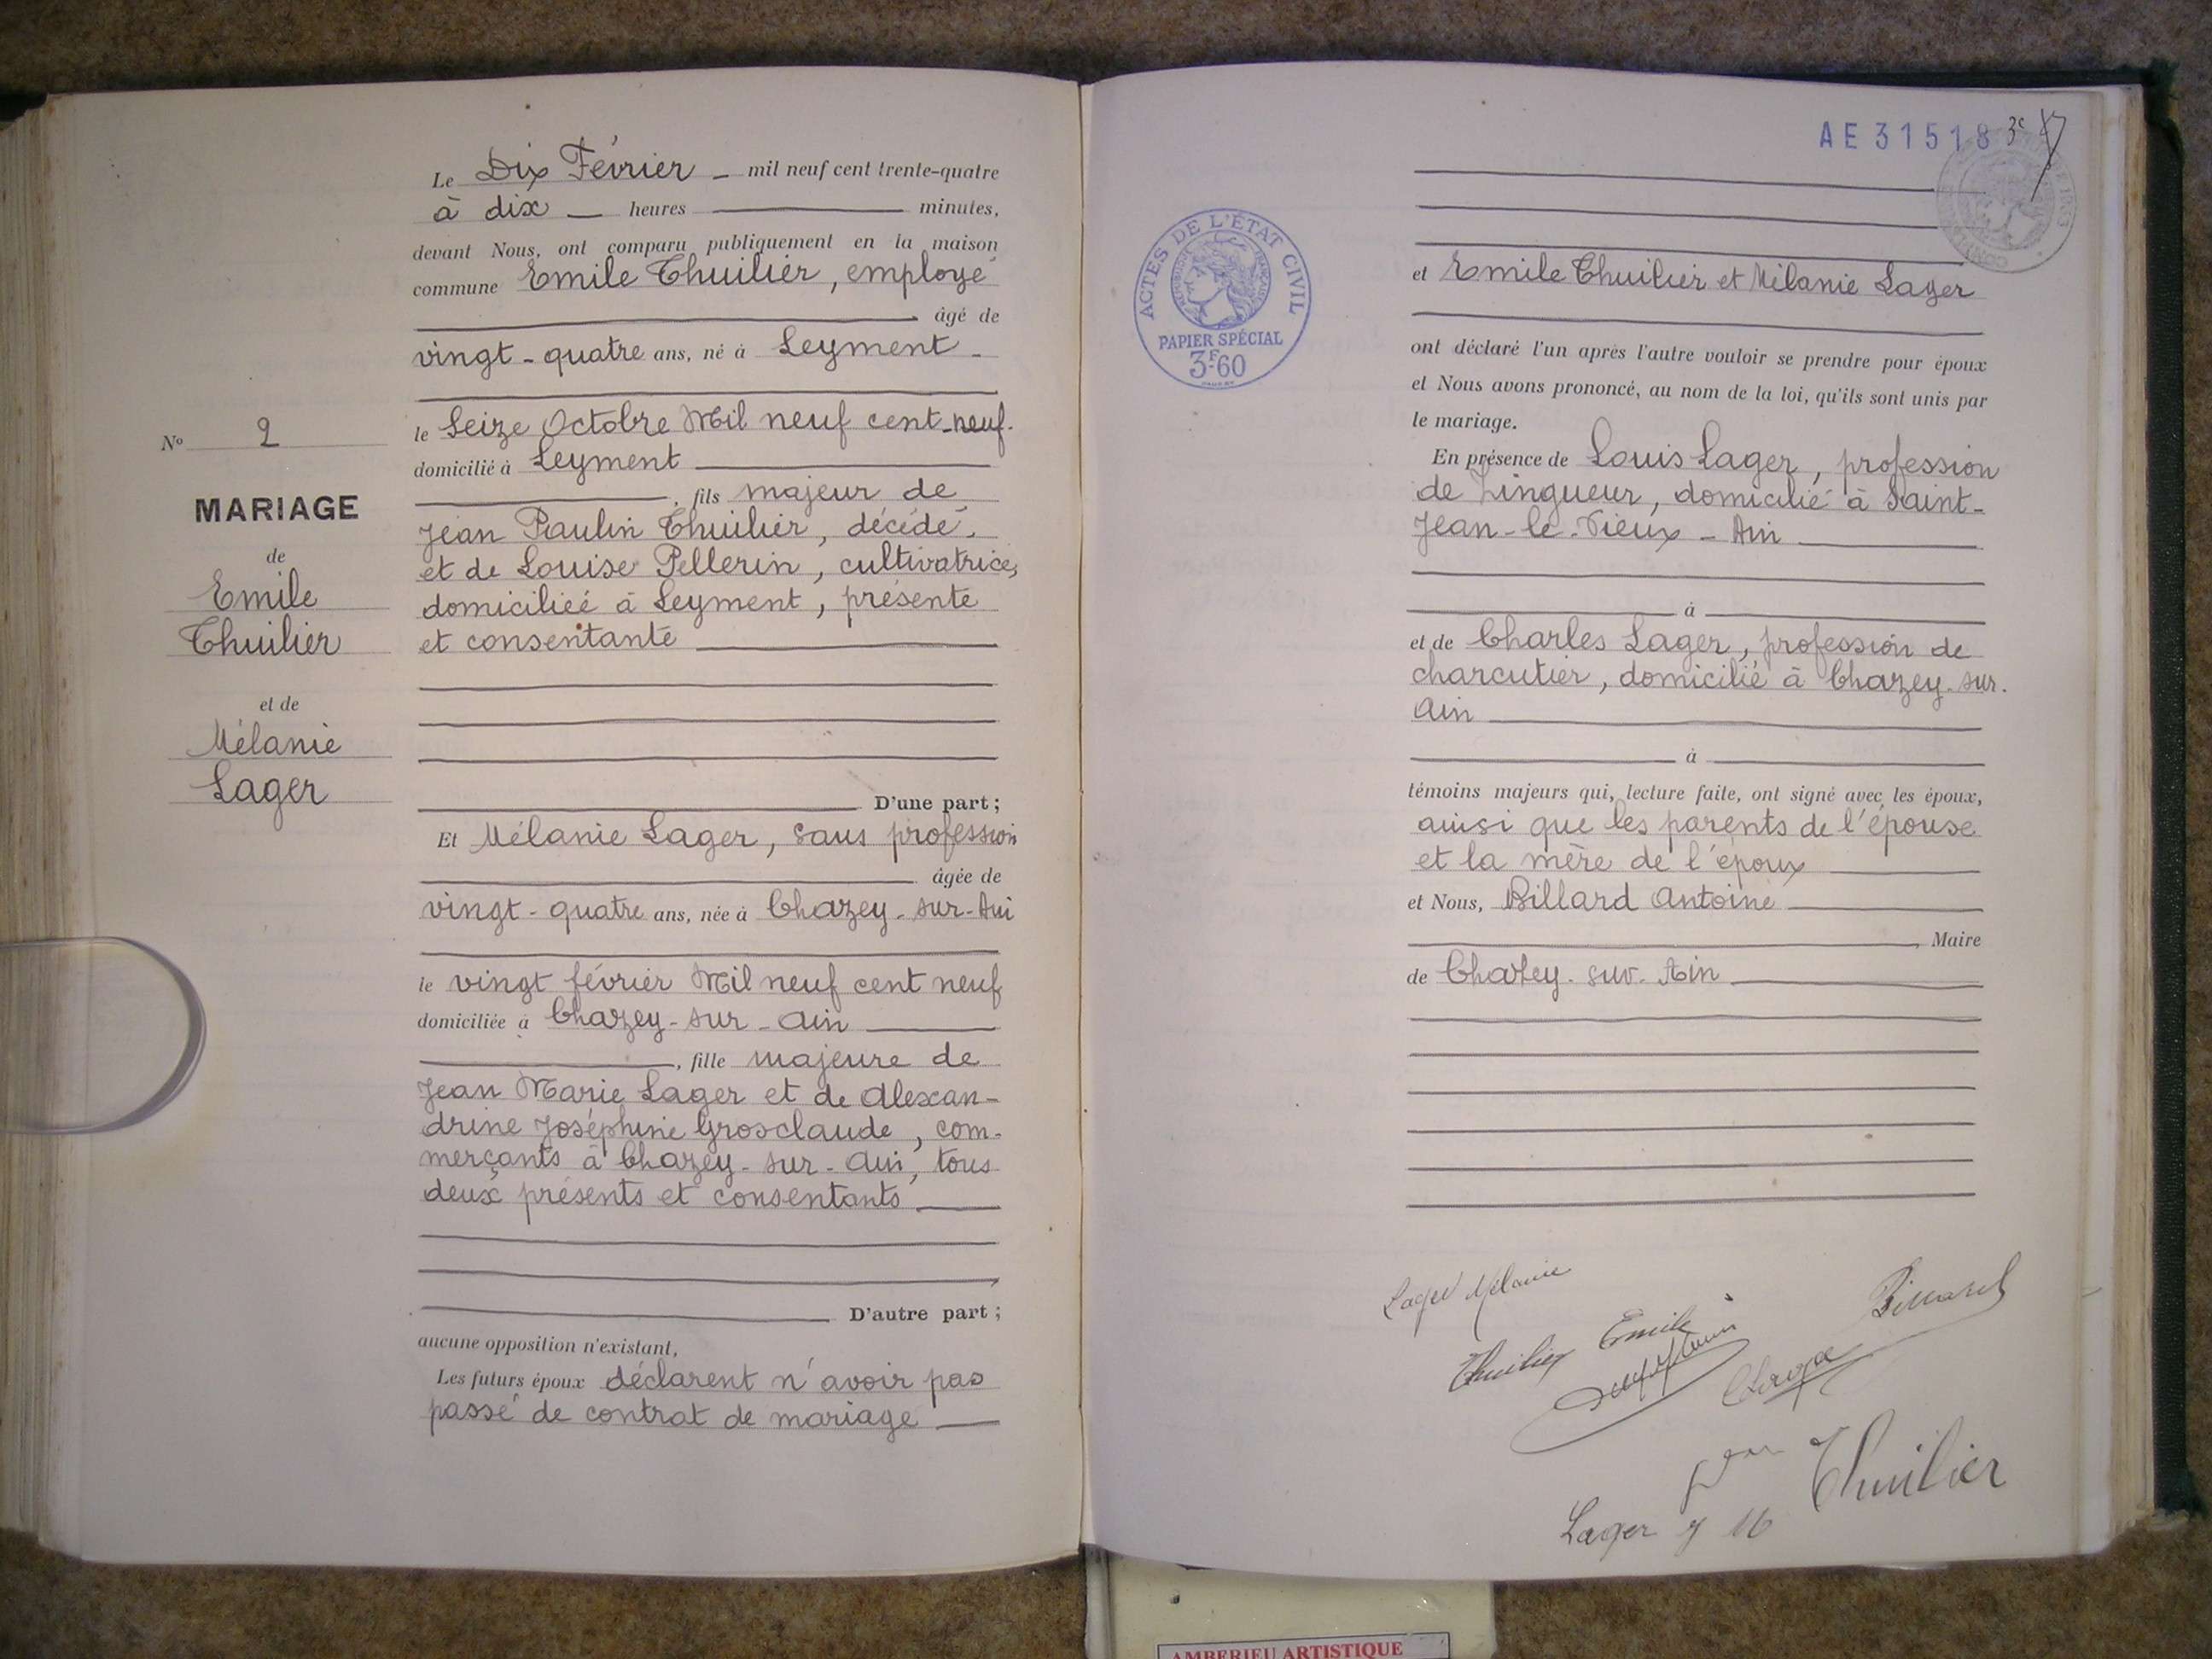 Le Dix Février - mil neuf cent trente-quatre
à dix — heures — minutes,
devant Nous, ont comparu publiquement en la maison
commune Emile Thuilier, employé
âgé de
vingt-quatre ans, né à Leyment -
le Seize Octobre Mil neuf cent-neuf.
domicilié à Leyment
, fils majeur de
Jean Paulin Thuilier, décédé,
et de Louise Pellerin, cultivatrice,
domiciliée à Leyment, présente
et consentante
D'une part ;
Et Mélanie Lager, sans profession
âgée de
vingt-quatre ans, née à Chazey-sur-Ain
le vingt février Mil neuf cent neuf
domiciliée à Chazey-sur-Ain
, fille majeure de
Jean Marie Lager et de Alexan-
drine Joséphine Grosclaude, com-
merçants à Chazey-sur-Ain, tous
deux présents et consentants
D'autre part ;
aucune opposition n'existant,
Les futurs époux déclarent n'avoir pas
passé de contrat de mariage
N° 2
MARIAGE
de
Emile
Thuilier
et de
Mélanie
Lager
AE 31518 3e
ACTES DE L'ÉTAT CIVIL
RÉPUBLIQUE FRANÇAISE
PAPIER SPÉCIAL
3F60
et Emile Thuilier et Mélanie Lager
ont déclaré l'un après l'autre vouloir se prendre pour époux
et Nous avons prononcé, au nom de la loi, qu'ils sont unis par
le mariage.
En présence de Louis Lager, profession
de Zingueur, domicilié à Saint-
Jean-le-Vieux - Ain
à
et de Charles Lager, profession de
charcutier, domicilié à Chazey-sur-
Ain
à
témoins majeurs qui, lecture faite, ont signé avec les époux,
ainsi que les parents de l'épouse
et la mère de l'époux
et Nous, Billard Antoine
, Maire
de Chazey-sur-Ain
Lager Mélanie
Billard
Thuilier Emile
Thuilier
Lager J M
AMBERIEU ARTISTIQUE